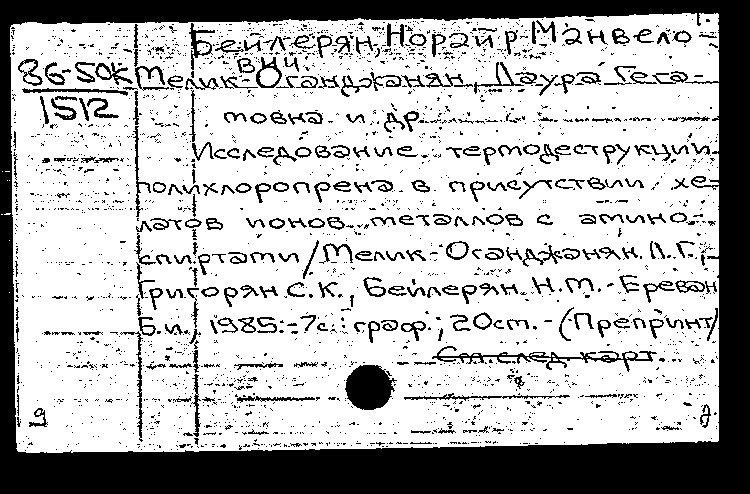 1.
Бейлерян, Норайр Манвело-
вич.
86-50К Мелик-Оганджанян, Лаура Гега-
1512
мовна и др.
Исследование термодеструкции
полихлоропрена в присутствии хе-
латов ионов металлов с амино-
спиртами / Мелик-Оганджанян Л.Г.,
Григорян С.К., Бейлерян Н.М. - Ереван
Б.и., 1985. - 7с.: граф.; 20см. - (Препринт/
См. след. карт.
g